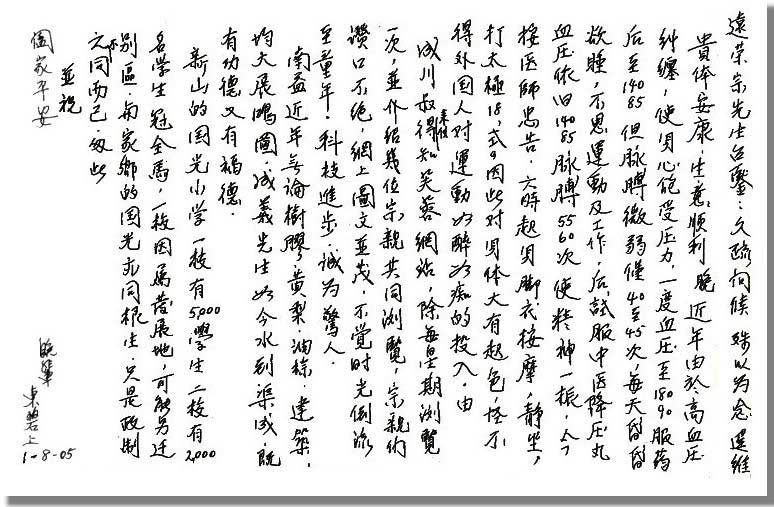 遠荣宗先生台鑒：久疏问候 殊以为念 遥維
貴体安康，生意順利 晚 近年由於高血圧
纠纏，使身心飽受圧力，一度血圧至180/90 服药
后至140/85 但脉膊微弱僅40至45次，每天昏昏
欲睡，不思運動及工作，后試服中医降圧丸
血圧依旧140/85 脉膊55 60次 使精神一振，今
按医師忠告，六時起身脚底按摩，静坐，
打太極18式，因此对身体大有起色，怪不
得外国人对運動如醉如痴的投入，由
成川叔得知芙蓉網站，除每星期浏覽
一次，並介紹幾位宗親共同浏覽，宗親們
讚口不绝，網上圖文並茂，不覚时光倒流
至童年，科技進步，诚为驚人．
南益近年無論樹膠，黄梨，油棕，建築，
均大展鴻圖，成義先生如今水到渠成，既
有功德又有福德．
新山的国光小学 一校有5,000學生 二校有2,000
名学生 冠全馬，一校因属發展地，可能另迁
别區，南家鄉的国光亦同根生，只是政制
不同而已，匆此
並祝
闔家平安
晚輩
上
1-8-05